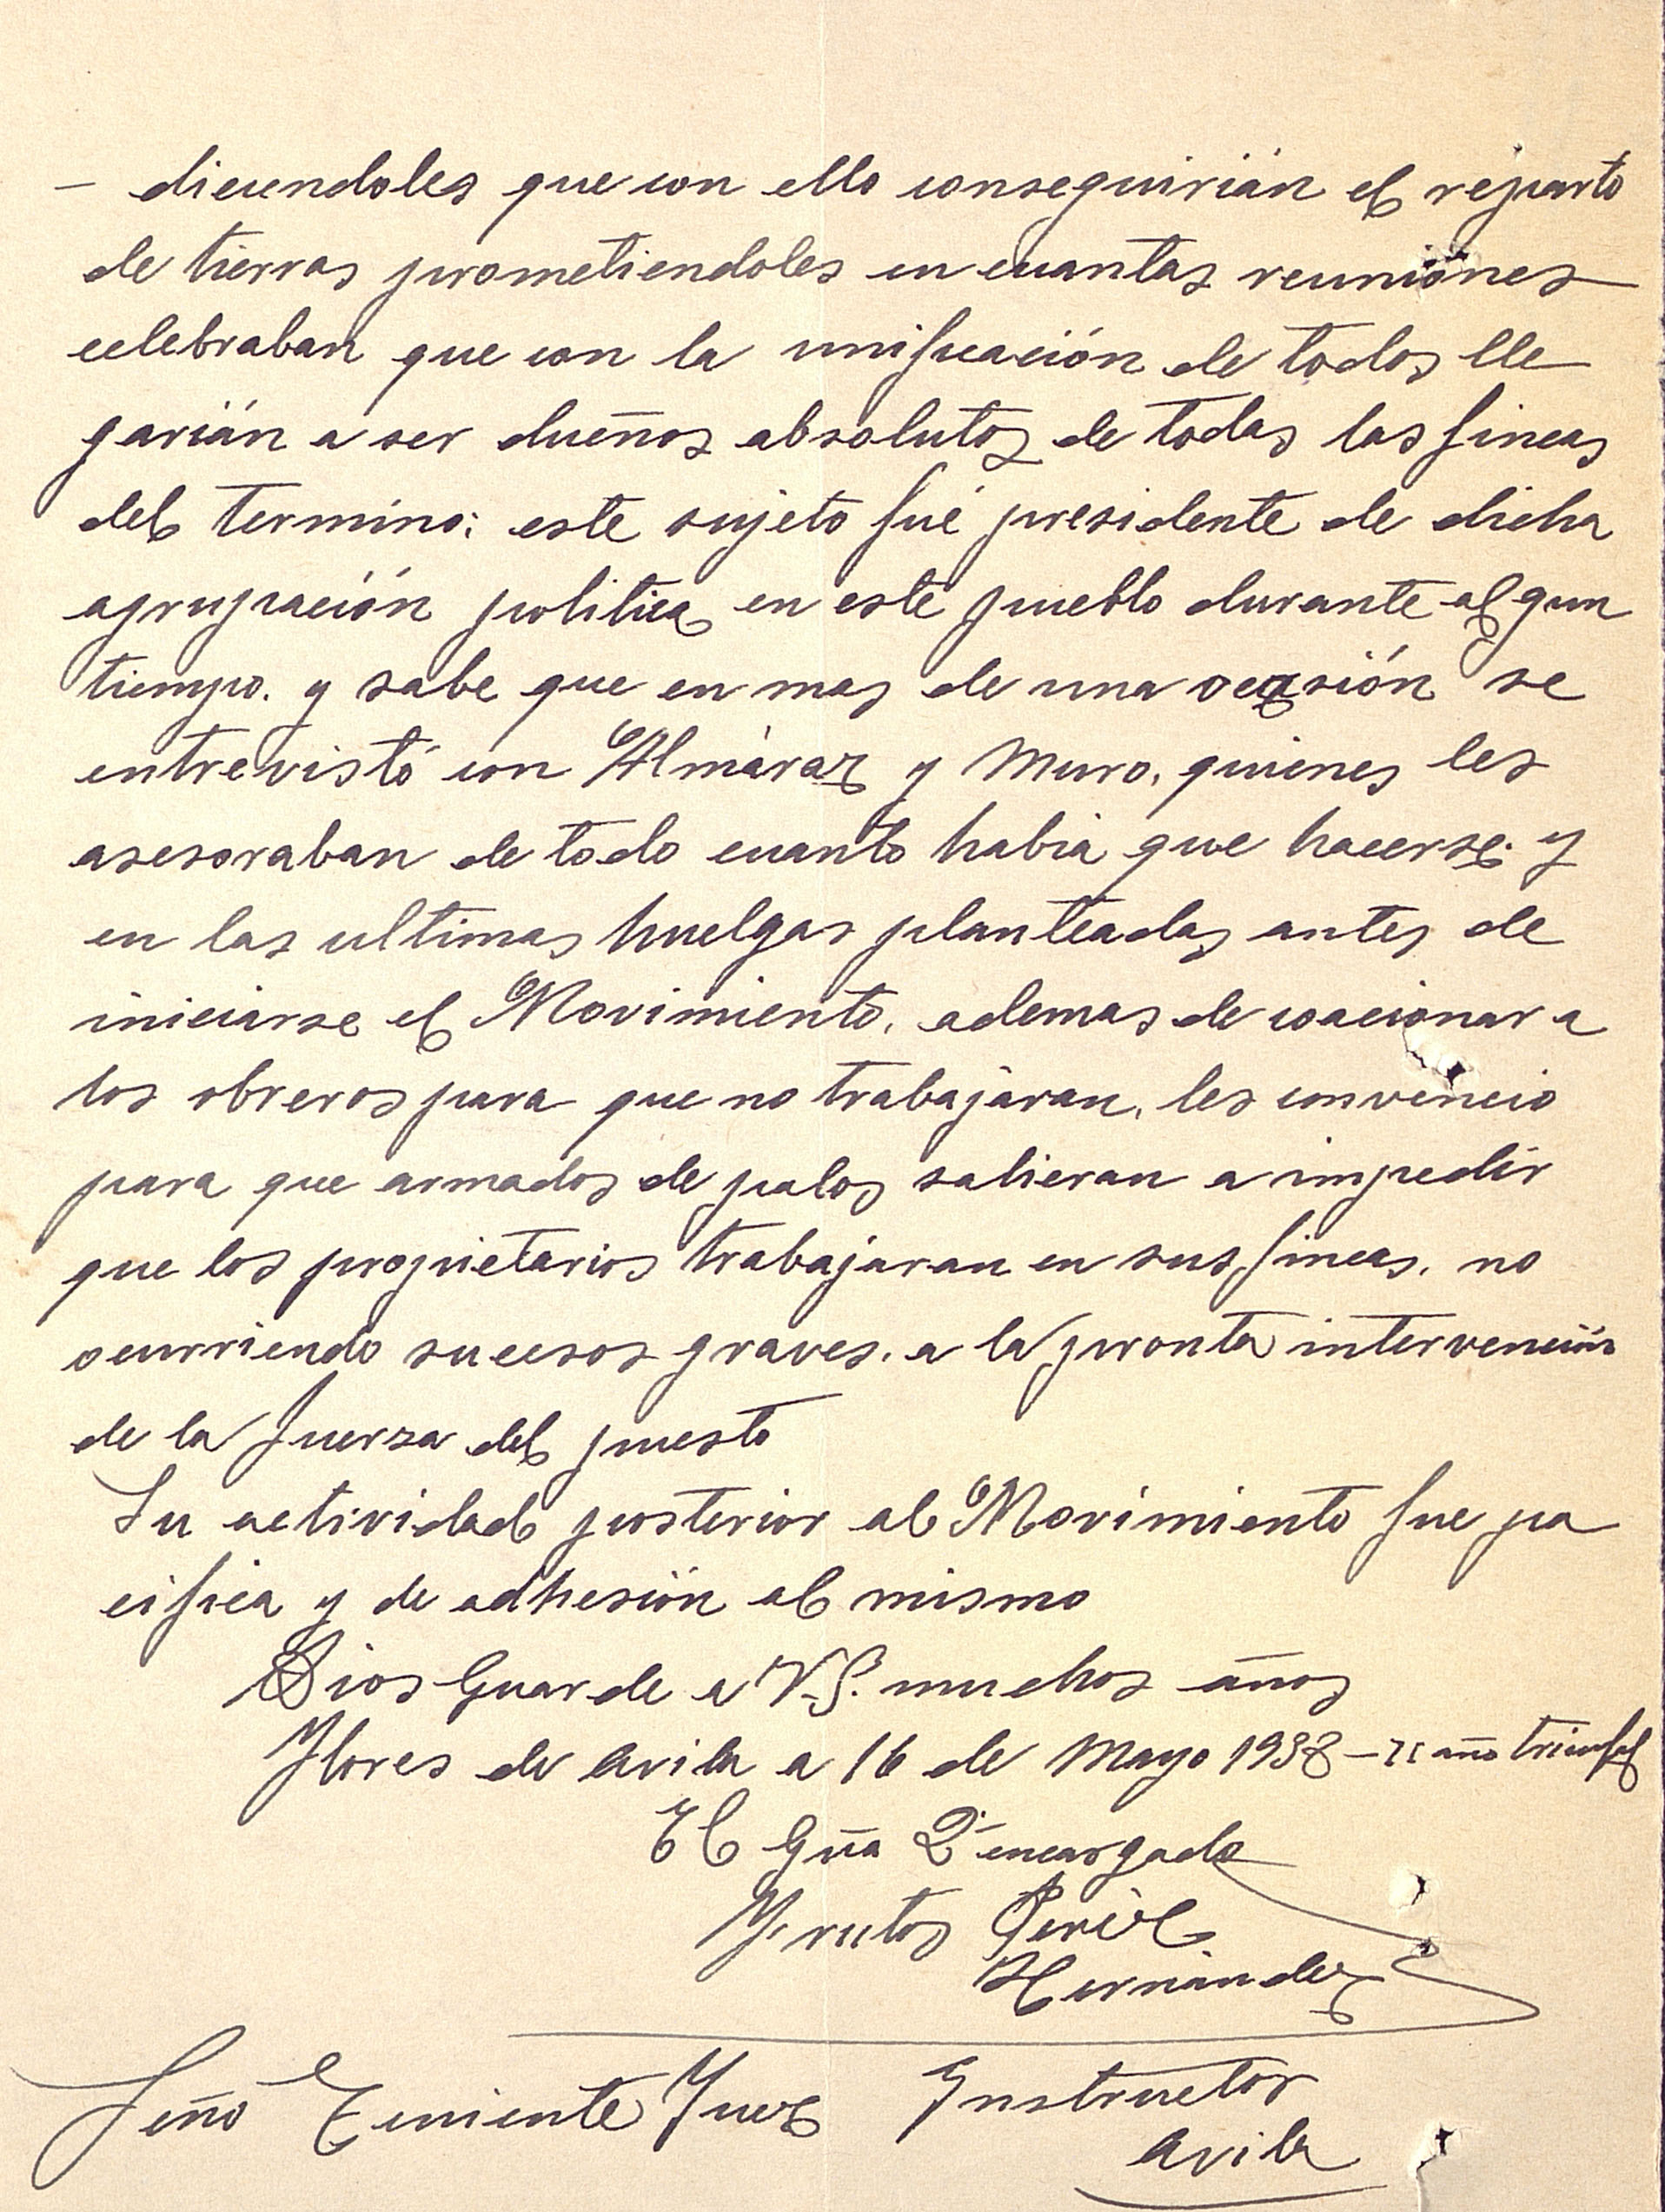 – diciendoles que con ello conseguirián el reparto
de tierras prometiendoles en cuantas reuniónes
celebraban que con la unificación de todos lle
garián a ser dueños absolutos de todas las fincas
del termino: este sujeto fué presidente de dicha
agrupación politica en este pueblo durante algun
tiempo. y sabe que en mas de una ocasión se
entrevistó con Almáraz y Muro, quienes les
asesoraban de todo cuanto habia que hacerse. y
en las ultimas huelgas planteadas antes de
iniciarse el Movimiento, ademas de coacionar a
los obreros para que no trabajaran, les convencio
para que armados de palos salieran a impedir
que los propietarios trabajaran en sus fincas, no
ocurriendo sucesos graves, a la pronta intervención
de la fuerza del puesto
Su actividad posterior al Movimiento fue pa
cifica y de adhesión al mismo
Dios Guarde a V.S. muchos años
Flores de Avila a 16 de Mayo 1938 – II año triunfal
El Guª 2º encargado
Frutos
Hernández
Señó Teniente Juez Instructor
Avila